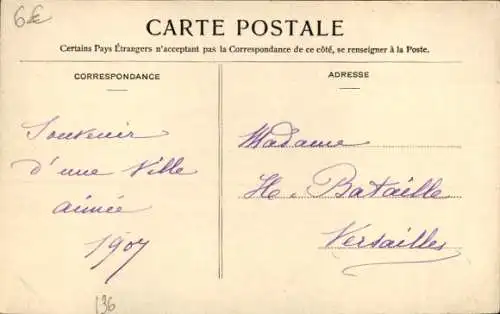 6€
CARTE POSTALE
Certains Pays Étrangers n'acceptant pas la Correspondance de ce côté, se renseigner à la Poste.
CORRESPONDANCE
Souvenir
d'une Ville
aimée
1907
ADRESSE
Madame
H. Bataille
Versailles
136